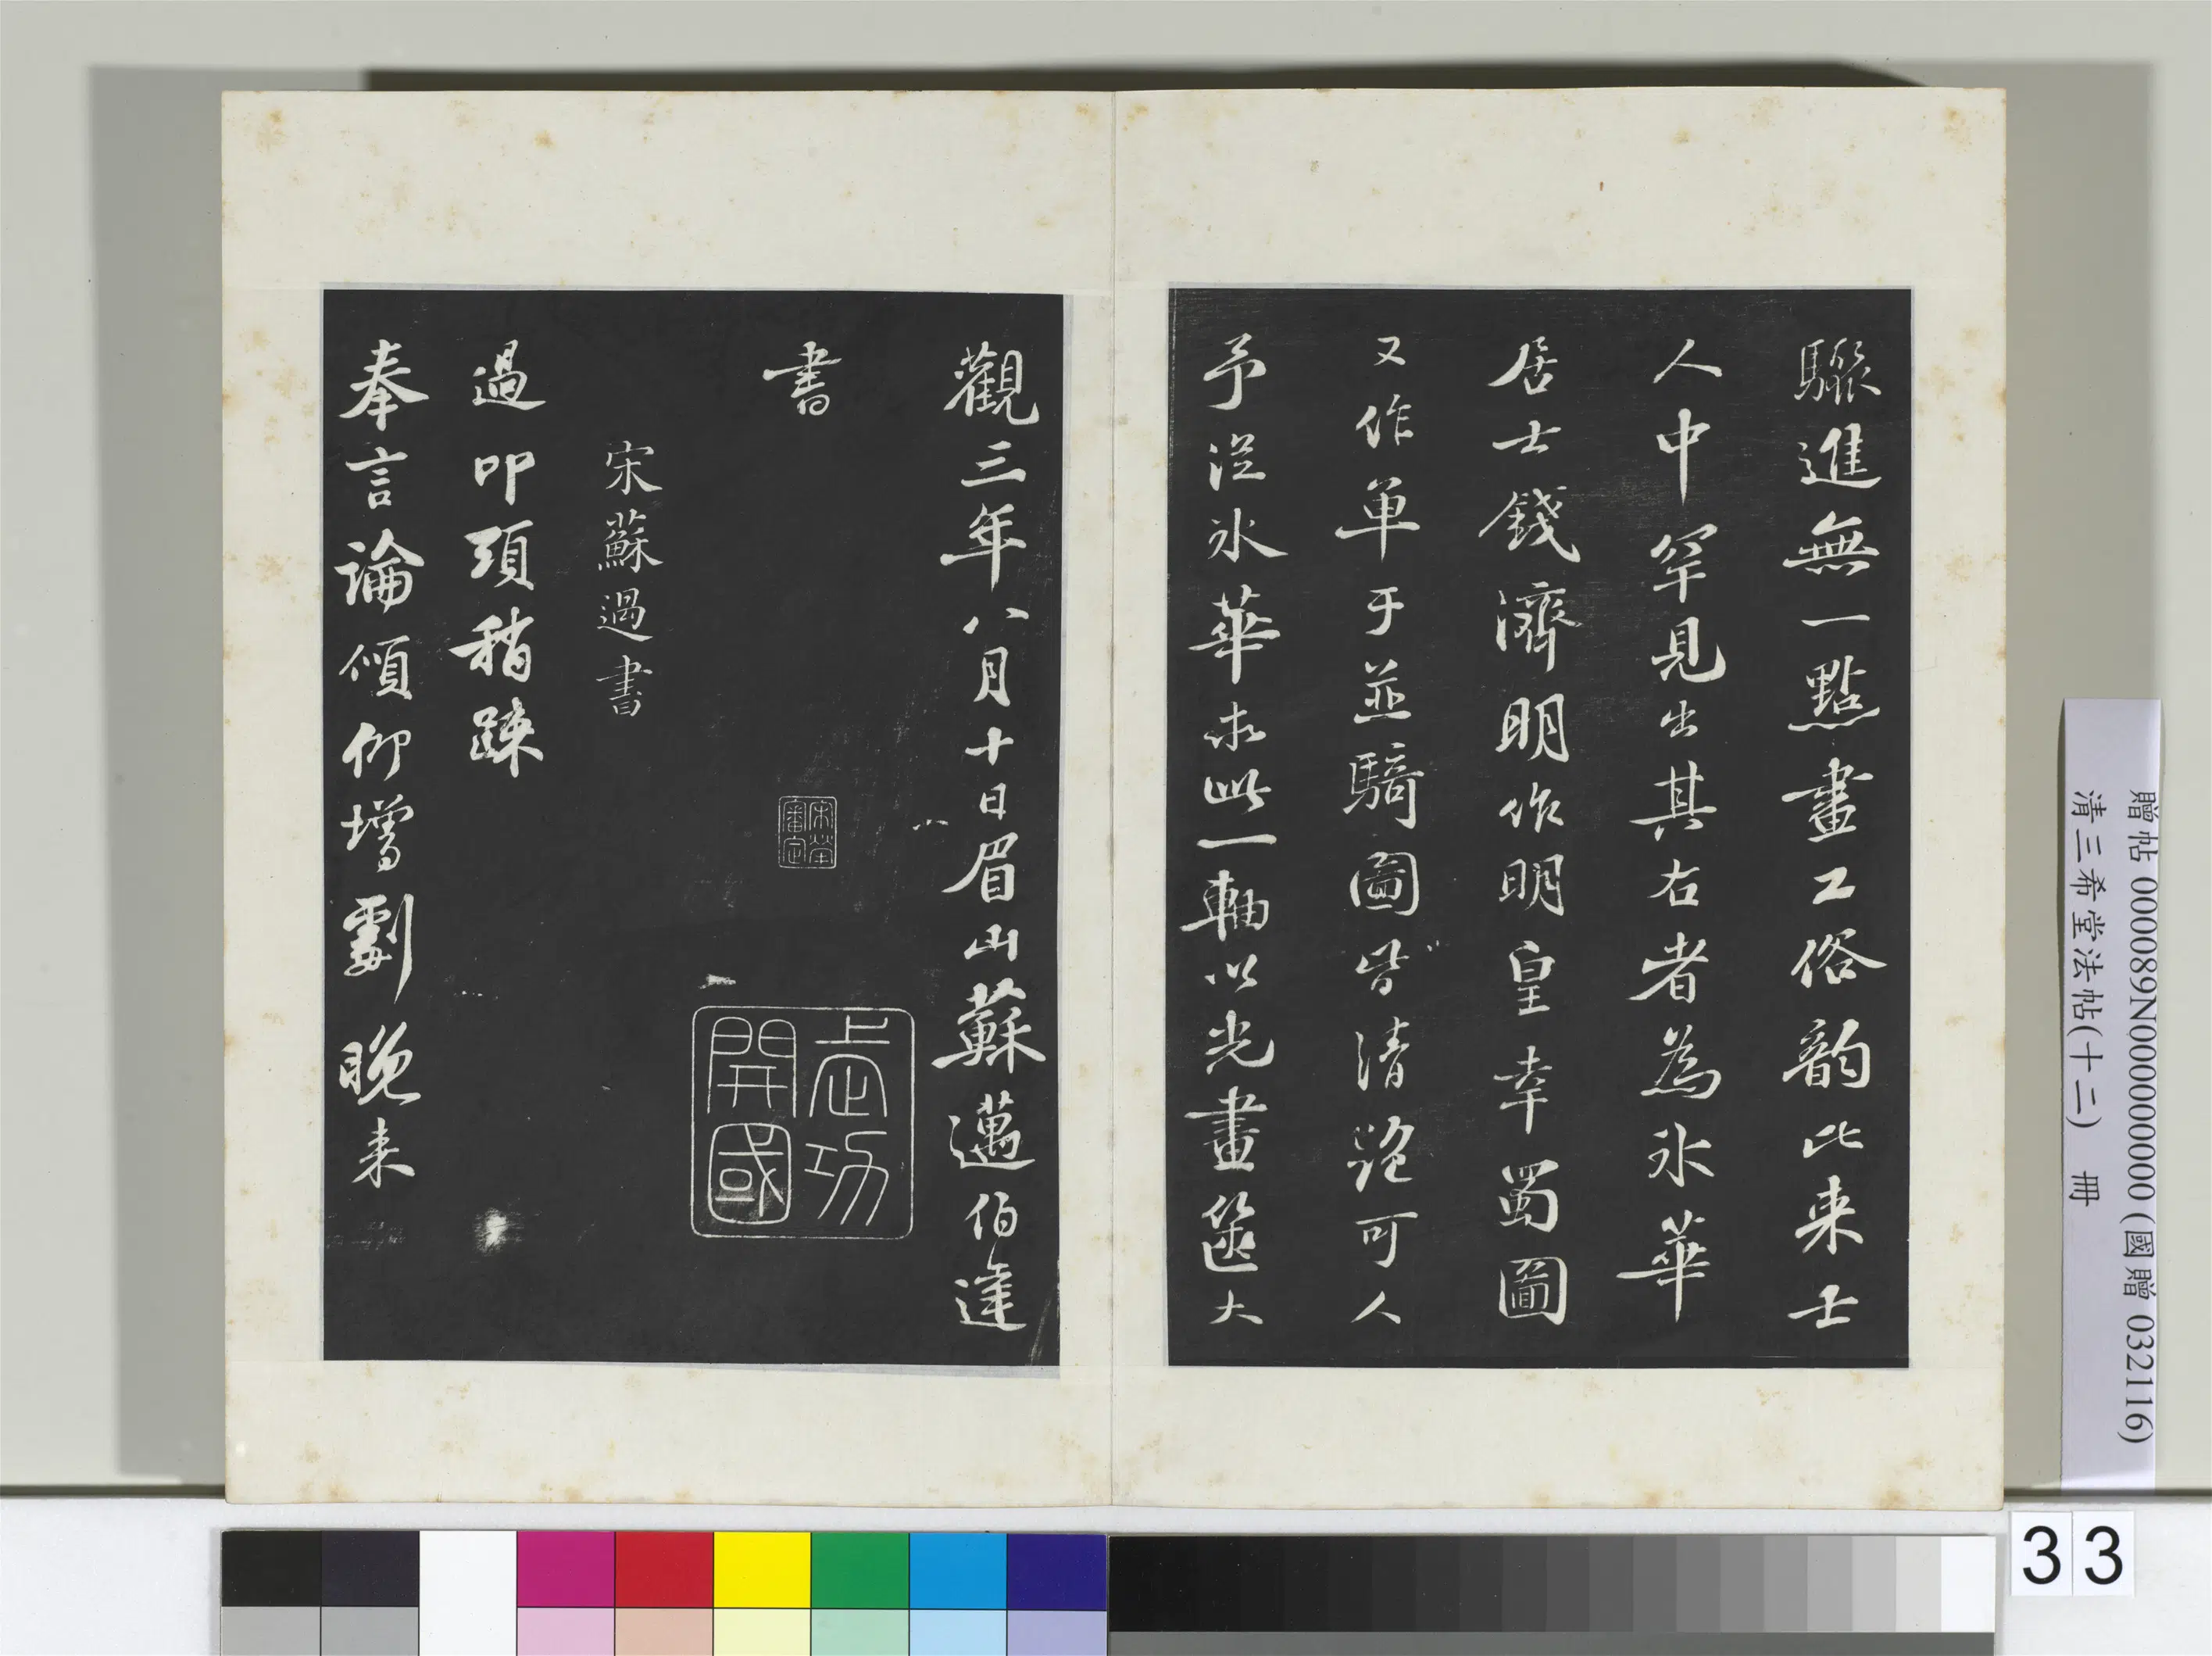 驟進無一點畫工俗韵比来士
人中罕見出其右者為氷華
居士錢濟明作明皇幸蜀圖
又作单于並騎圖皆清絶可人
予從氷華求此一軸以光畫篋大
觀三年八月十日眉山蘇邁伯達
書
宋犖審定
武功開國
宋蘇過書
過叩頭稍疎
奉言論傾仰增劇晚来
贈帖 000089N000000000 (國贈 032116)
清三希堂法帖(十二) 冊
33